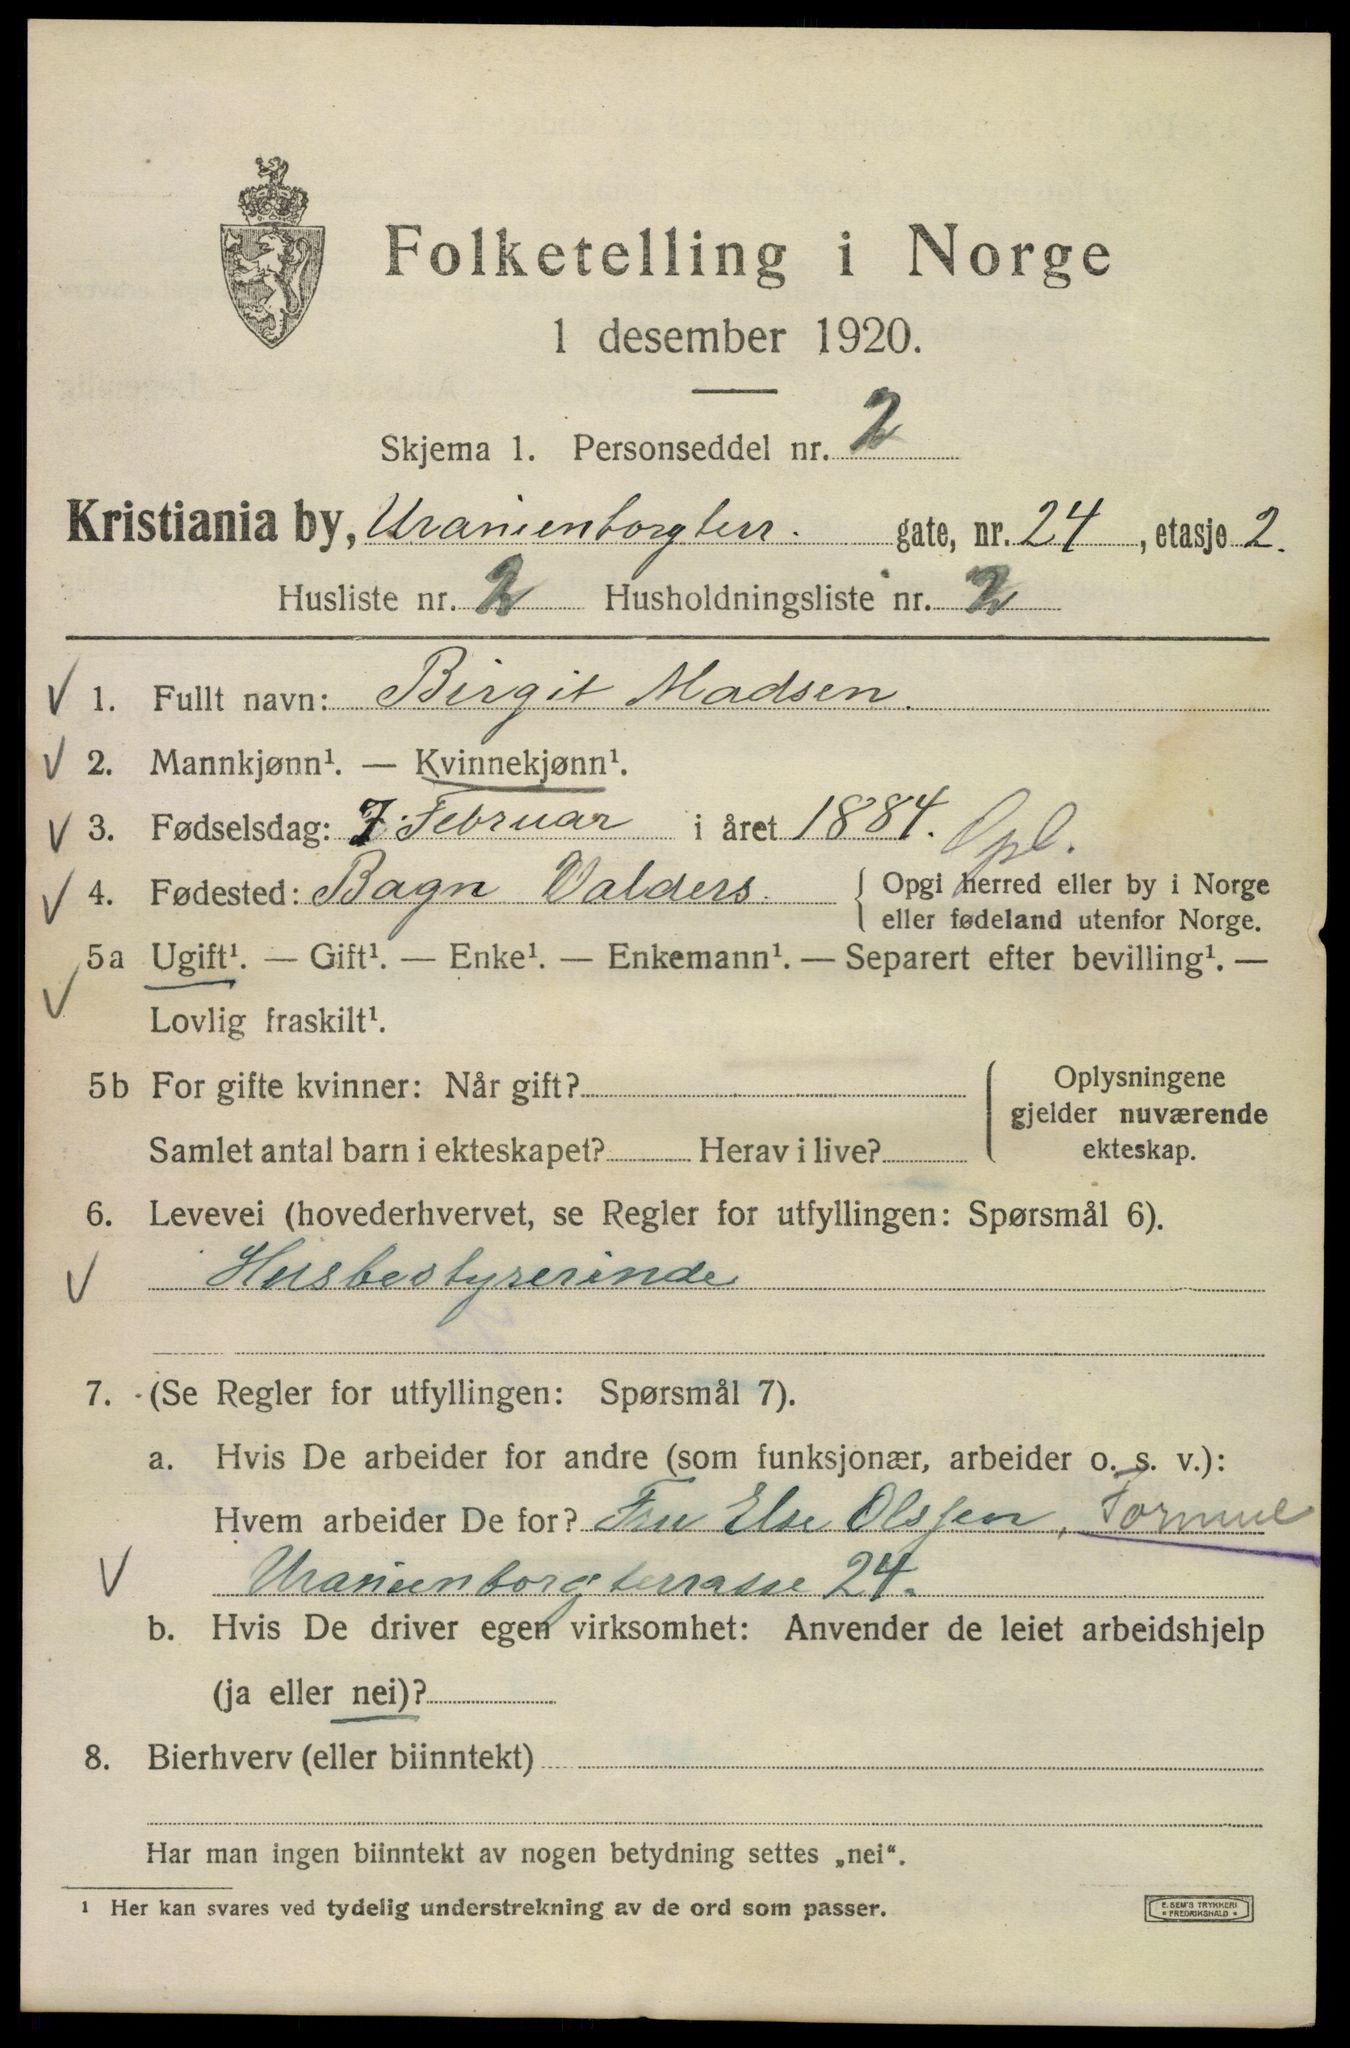 Folketelling i Norge
1 desember 1920.
Skjema 1. Personseddel nr. 2
Kristiania by, Uranienborgterr. gate, nr. 24, etasje 2.
Husliste nr. 2 Husholdningsliste nr. 2
1. Fullt navn: Birgit Madsen.
2. Mannkjønn¹. — Kvinnekjønn¹.
3. Fødselsdag: 7. Februar i året 1884. Opl.
4. Fødested: Bagn Valders. Opgi herred eller by i Norge
eller fødeland utenfor Norge.
5a Ugift¹. — Gift¹. — Enke¹. — Enkemann¹. — Separert efter bevilling¹. —
Lovlig fraskilt¹.
5b For gifte kvinner: Når gift? Oplysningene
gjelder nuværende
Samlet antal barn i ekteskapet? Herav i live? ekteskap.
6. Levevei (hovederhvervet, se Regler for utfyllingen: Spørsmål 6).
Husbestyrerinde
7. (Se Regler for utfyllingen: Spørsmål 7).
a. Hvis De arbeider for andre (som funksjonær, arbeider o. s. v.):
Hvem arbeider De for? Fru Else Olssen, Formue
Uranienborgterrasse 24.
b. Hvis De driver egen virksomhet: Anvender de leiet arbeidshjelp
(ja eller nei)?
8. Bierhverv (eller biinntekt)
Har man ingen biinntekt av nogen betydning settes „nei“.
¹ Her kan svares ved tydelig understrekning av de ord som passer.
E. SEM'S TRYKKERI
* FREDRIKSHALD *